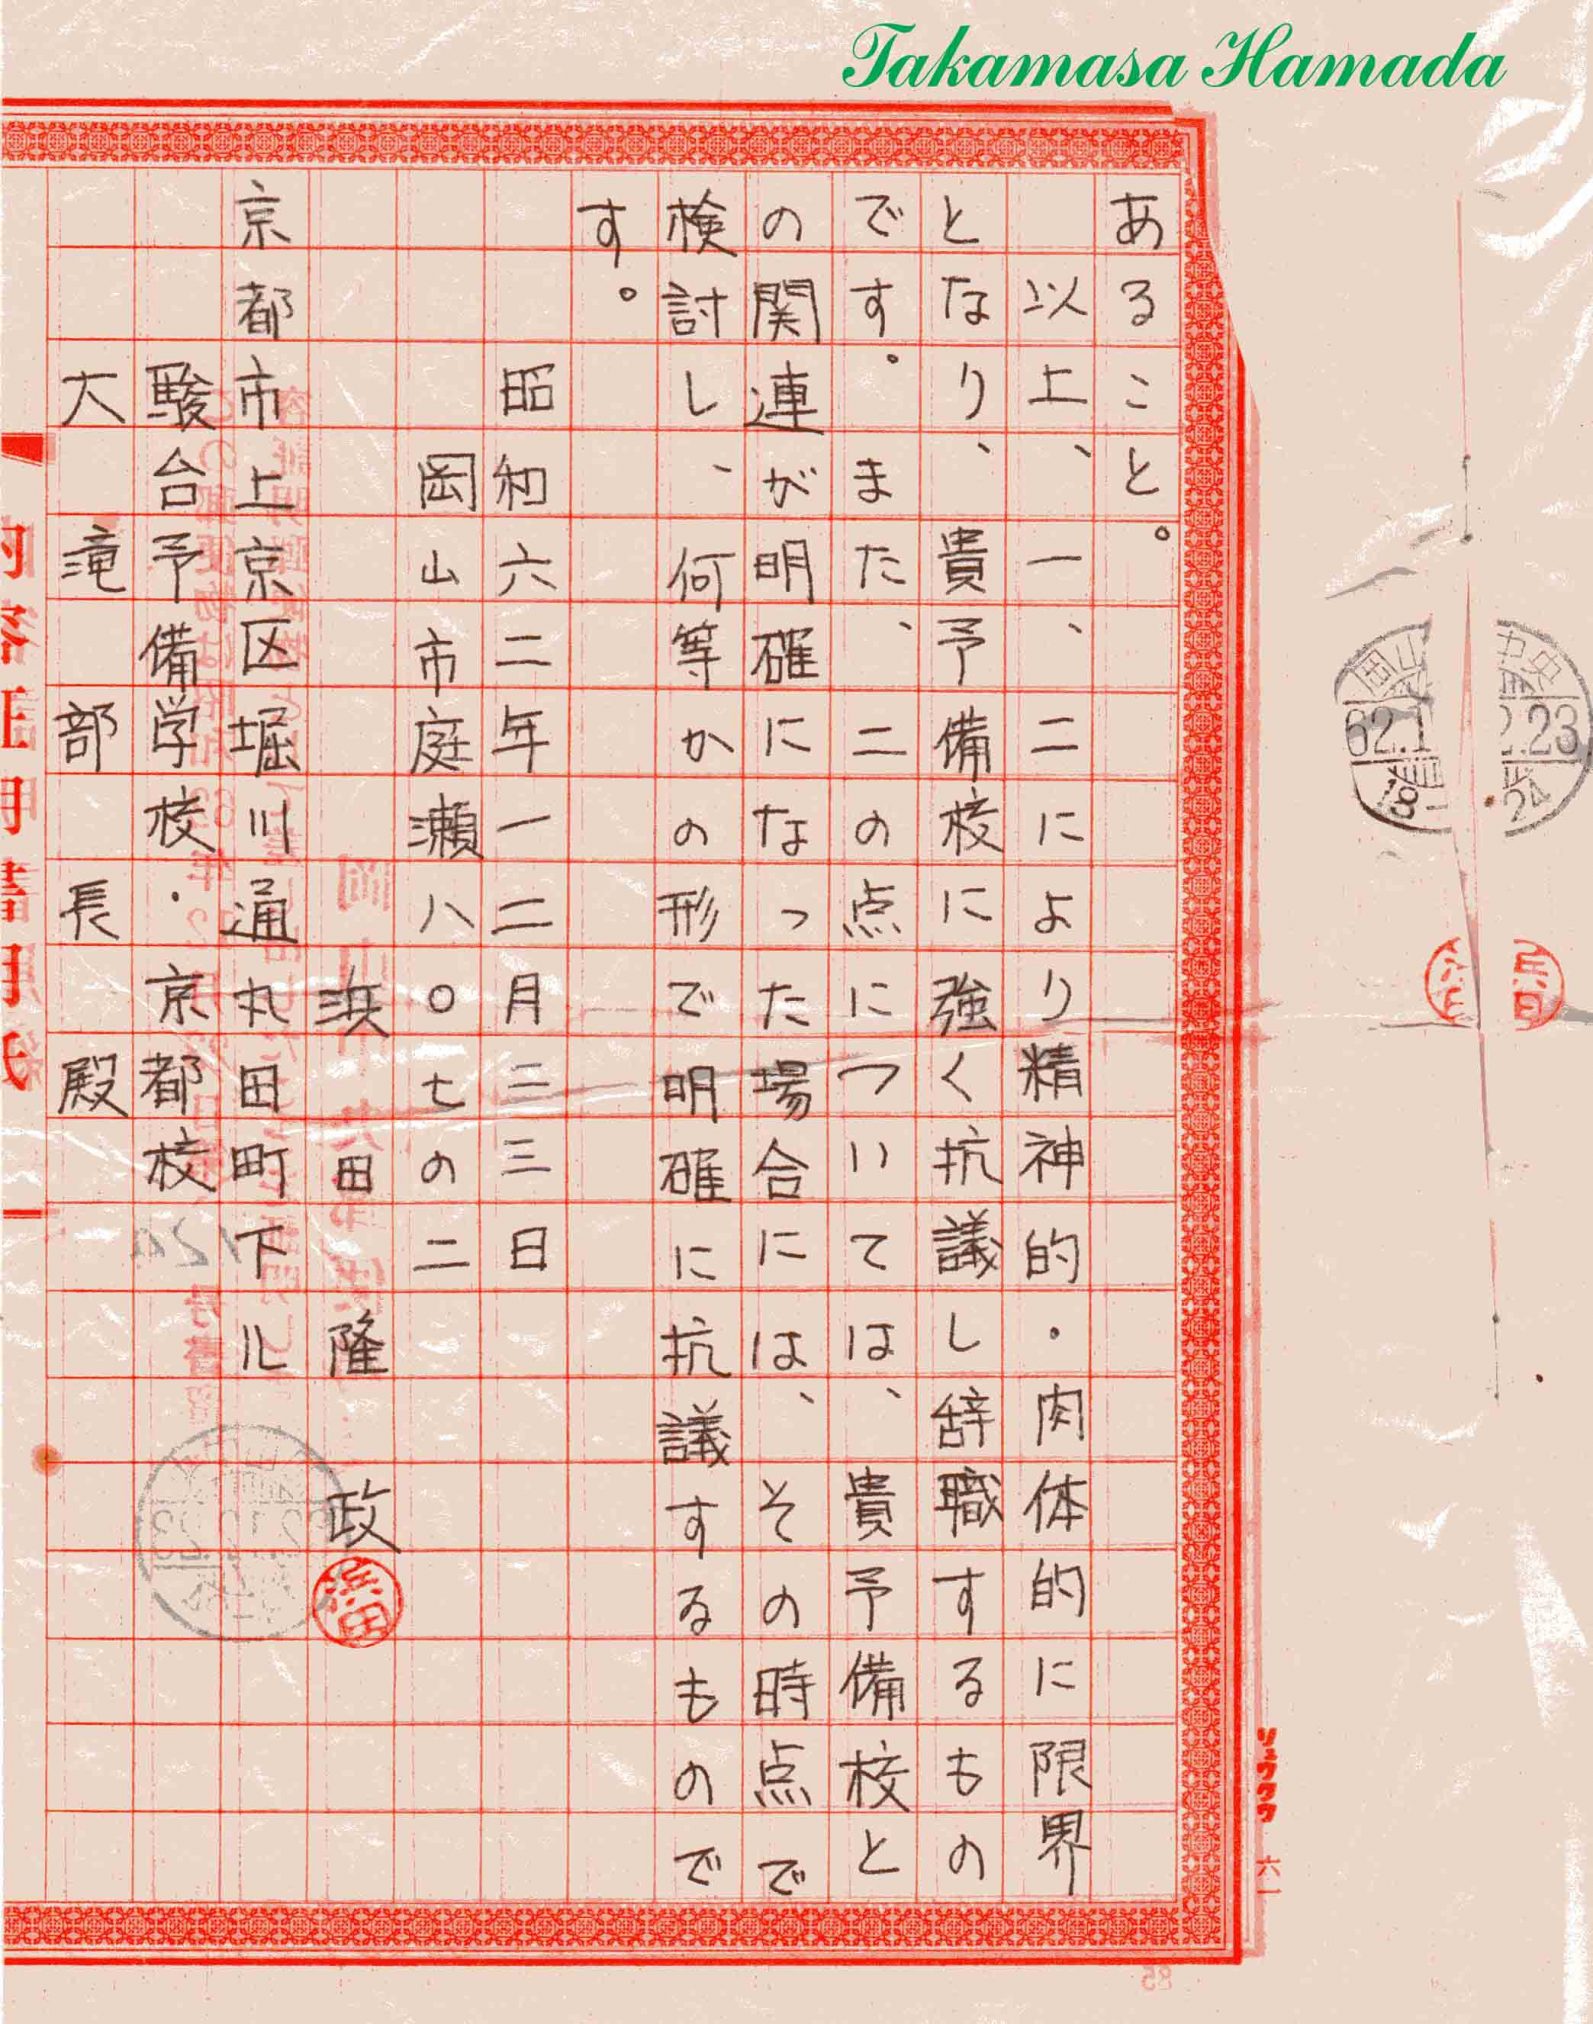 Takamasa Hamada
あること。
以上、一、二により精神的・肉体的に限界
となり、貴予備校に強く抗議し辞職するもの
です。また、二の点については、貴予備校と
の関連が明確になった場合には、その時点で
検討し、何等かの形で明確に抗議するもので
す。
昭和六二年一二月二三日
岡山市庭瀬八〇七の二
浜田隆政
浜田
京都市上京区堀川通丸田町下ル
駿台予備学校・京都校
大滝部長殿
リュウクウ 六一
岡山中央